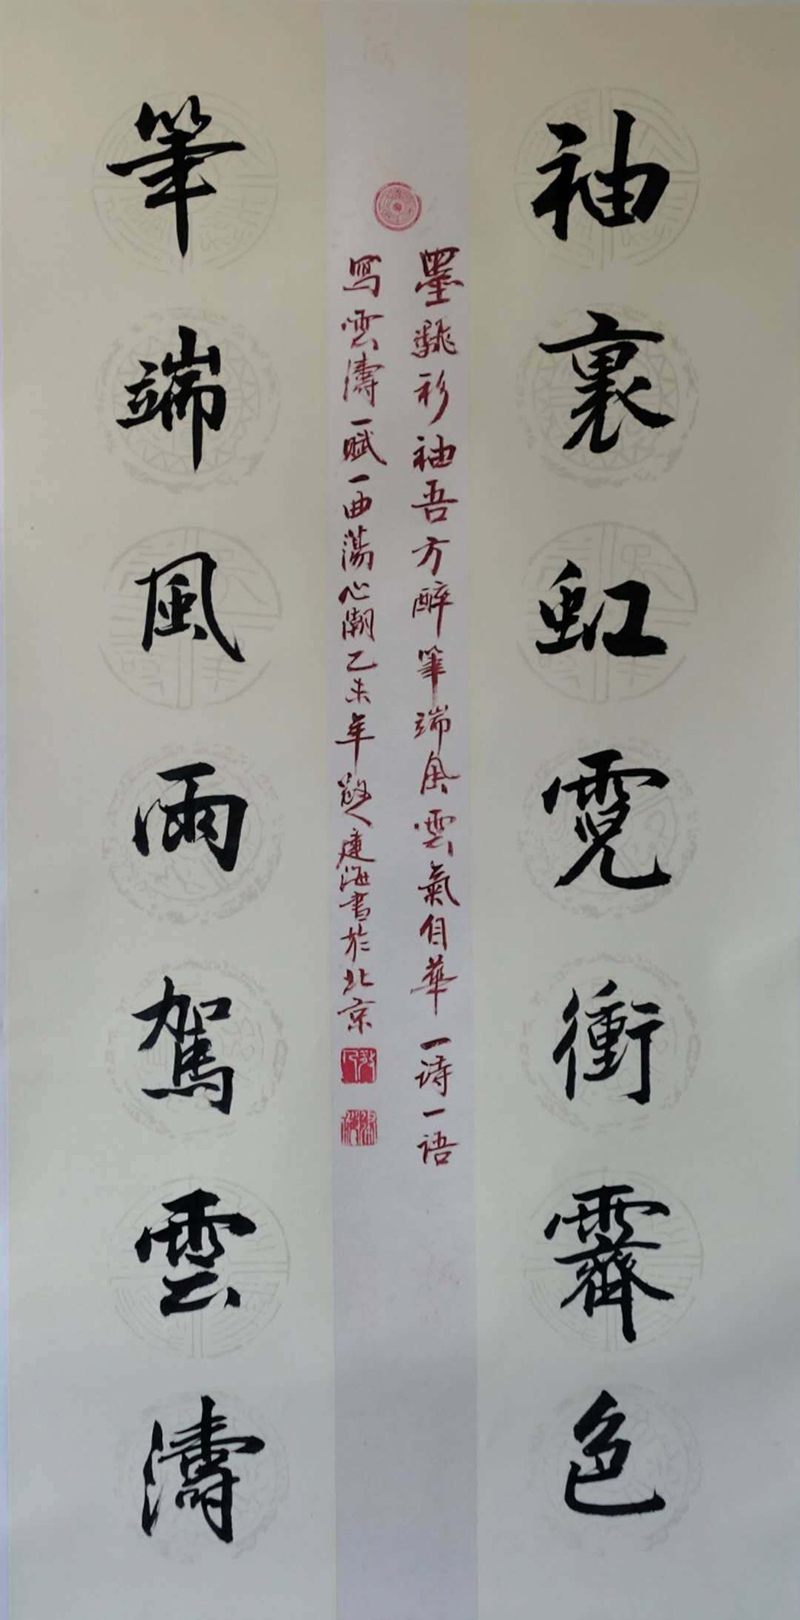 袖裏虹霓衝霽色
筆端風雨駕雲濤
墨飛彩袖吾方醉筆端風雲氣自華一诗一语
寫雲濤一賦一曲蕩心潮乙未年散人建海書於北京